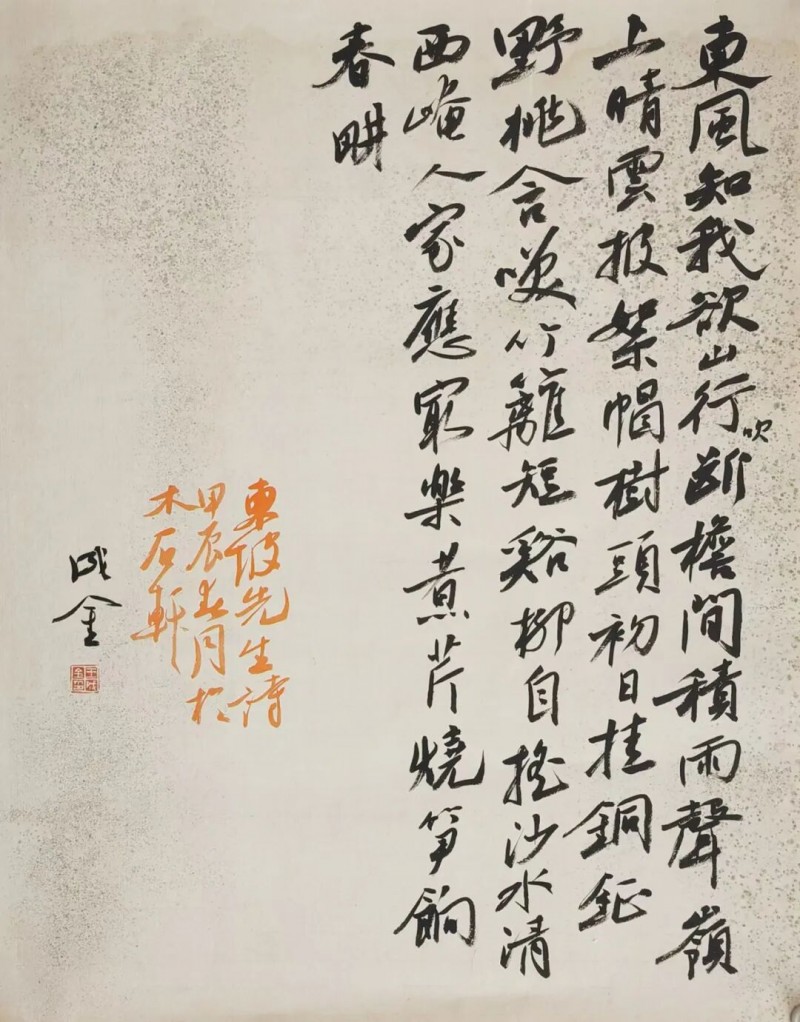 東風知我欲山行吹斷檐間積雨聲嶺
上晴雲披絮帽樹頭初日挂銅鉦
野桃含咲竹籬短谿柳自搖沙水清
西崦人家應冣樂煮芹燒笋餉
春畊
東坡先生詩
甲辰春月於
木石軒
成金